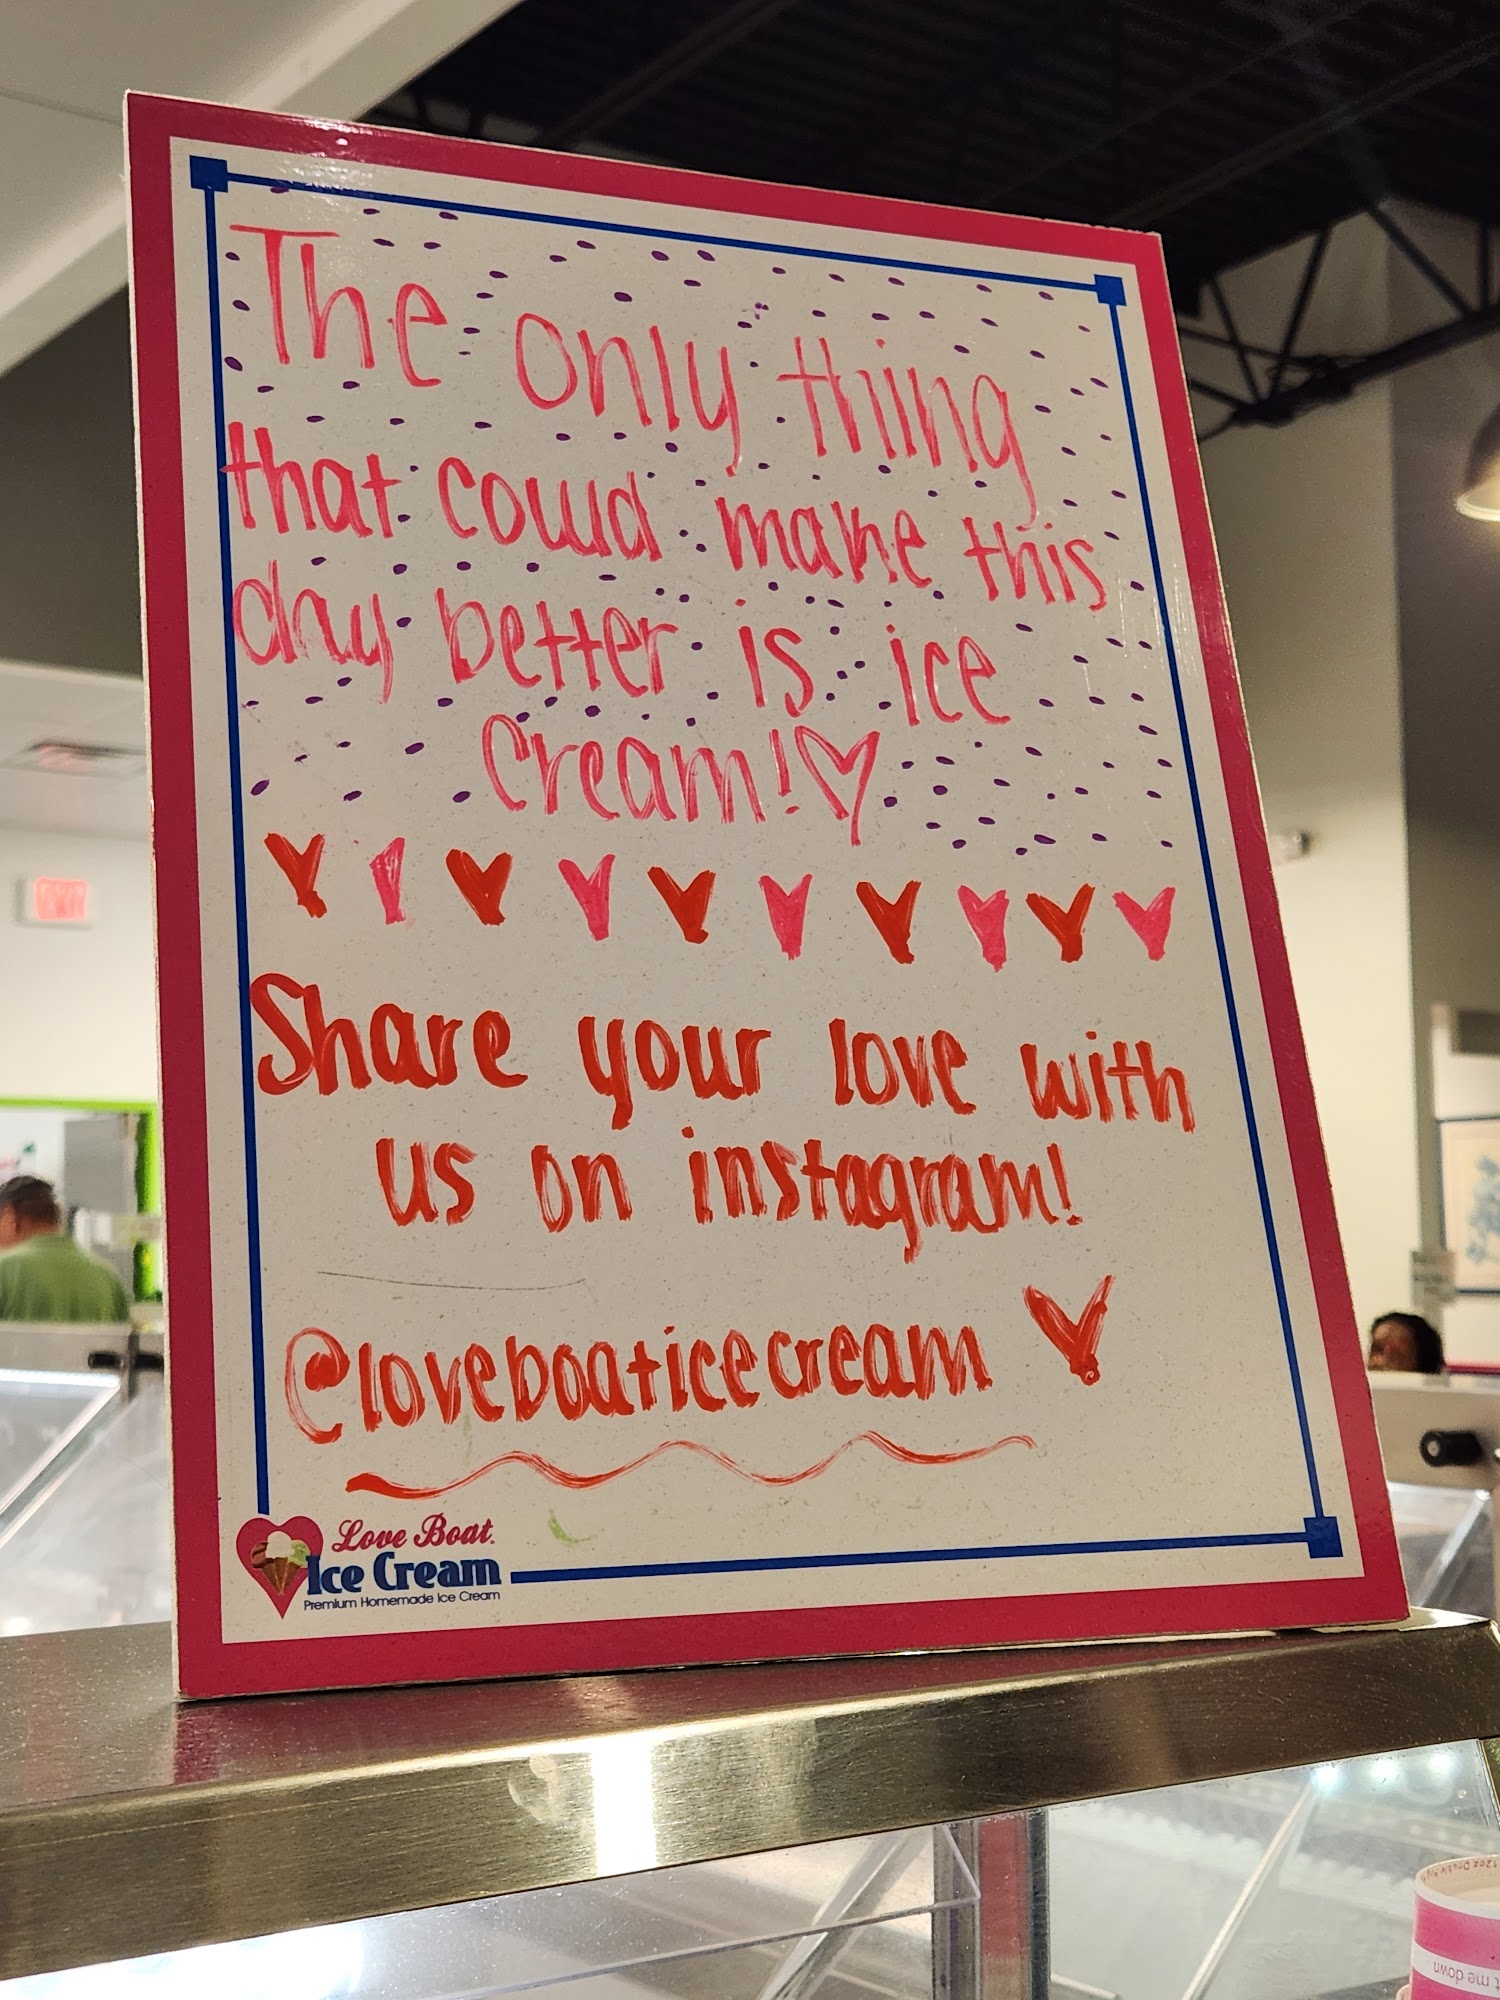 The only thing
that could make this
day better is ice
cream!
Share your love with
us on instagram!
@loveboaticecream
Love Boat
Ice Cream
Premium Homemade Ice Cream
EXIT
t me down